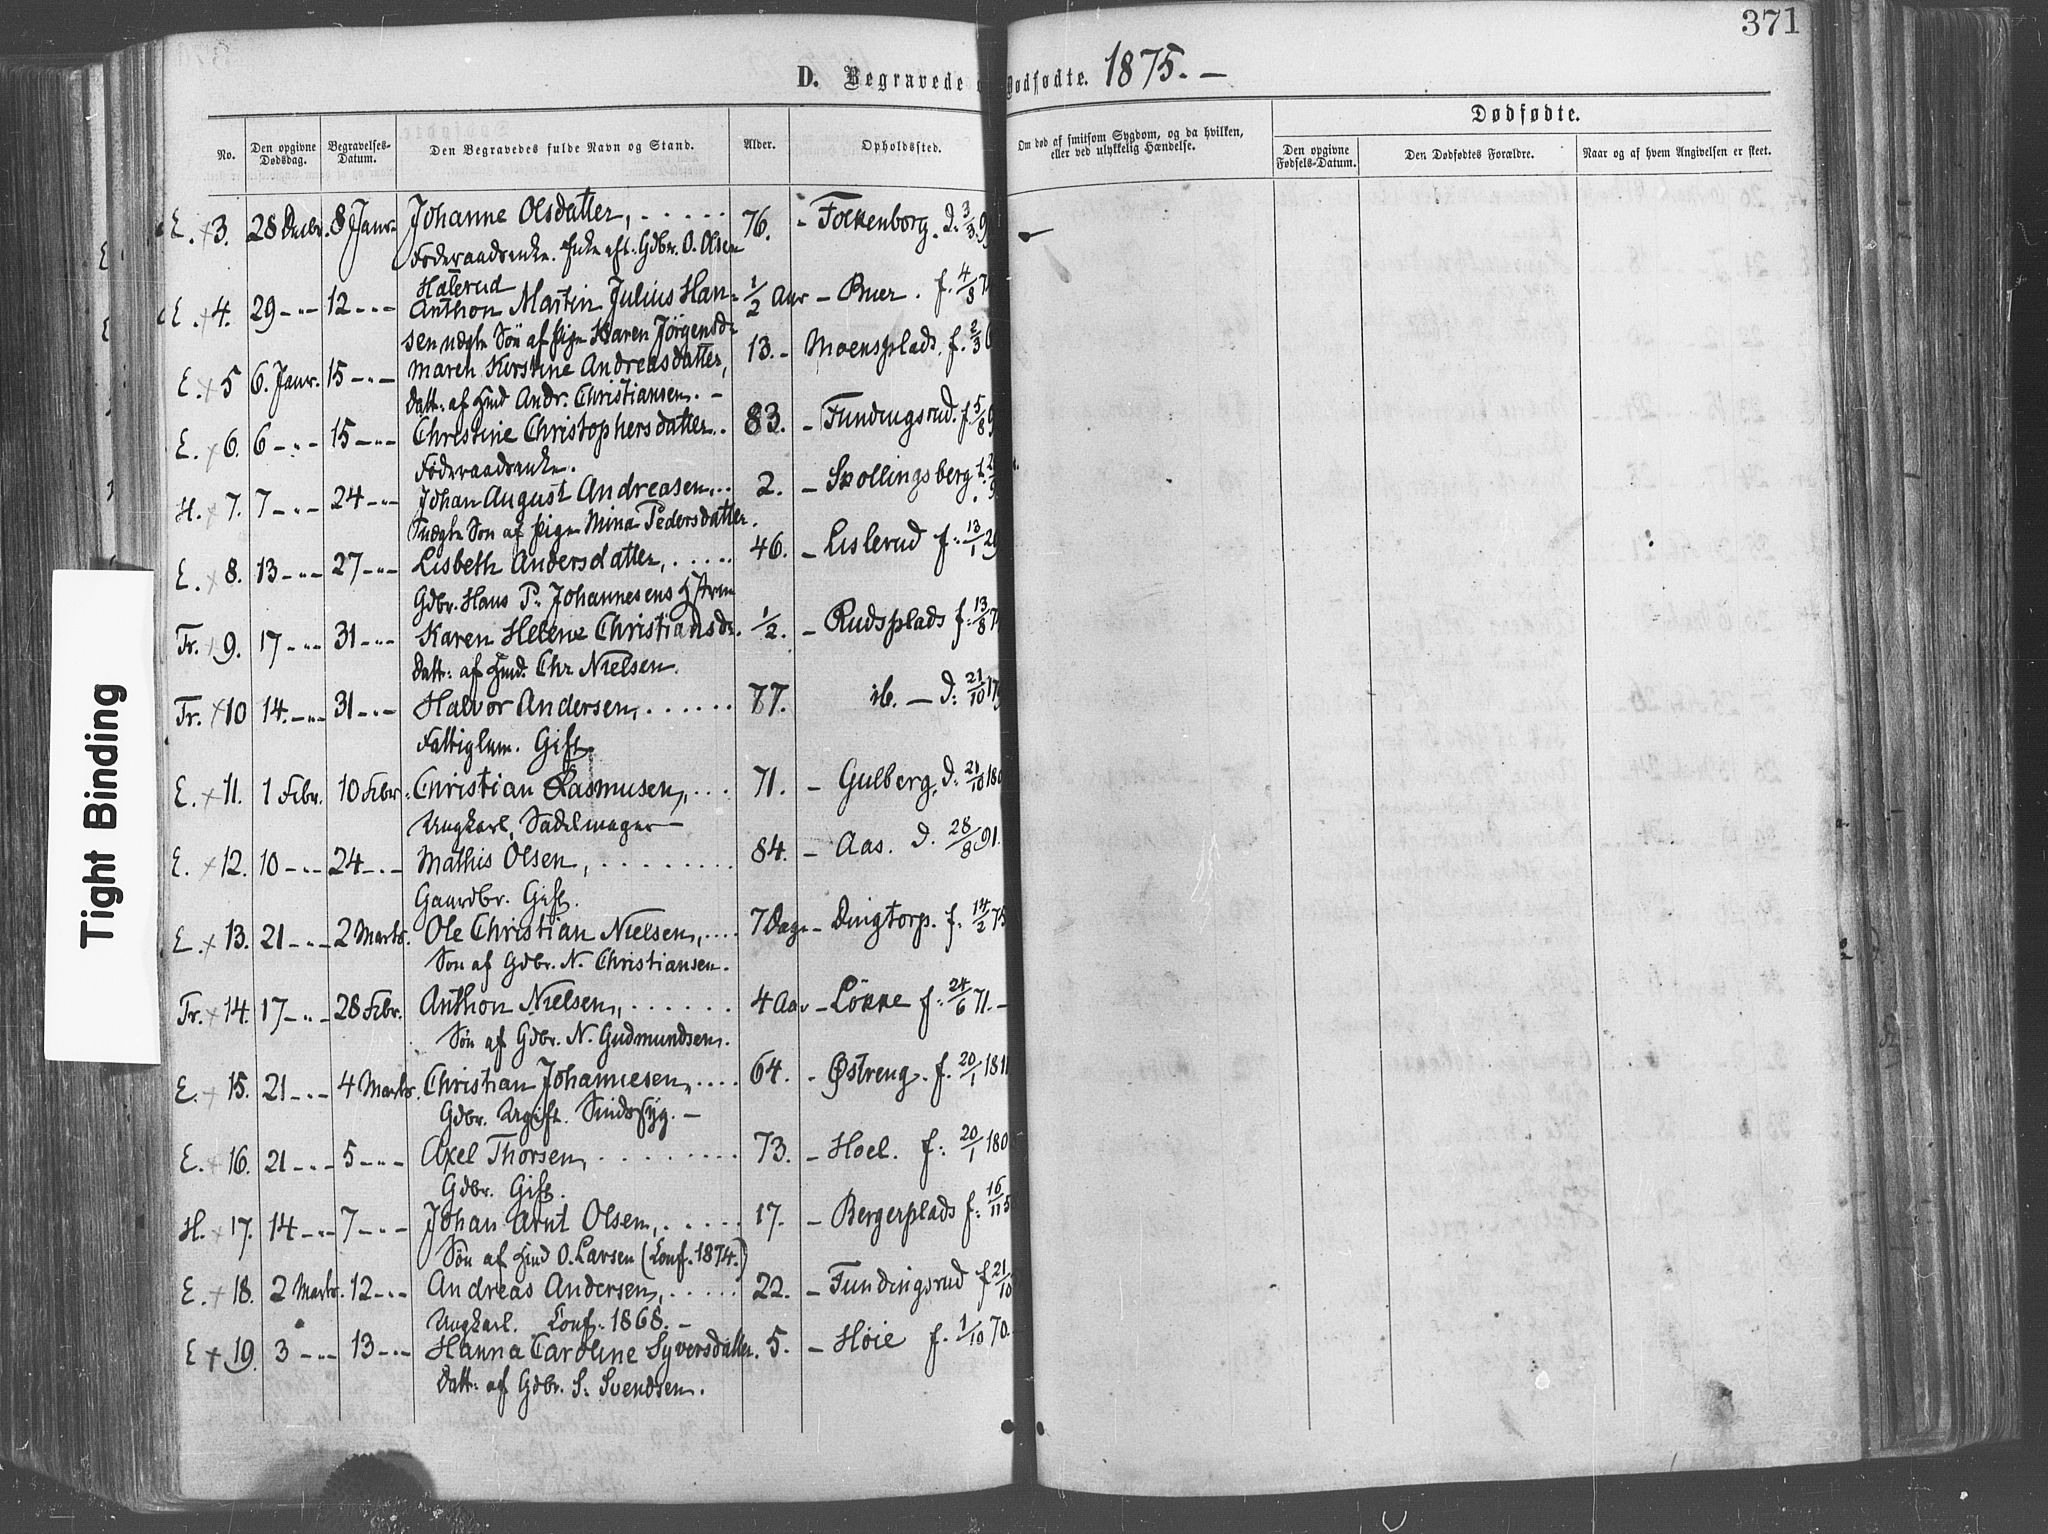 371
D. Begravede o Dødfødte. 1875. —
No.
Den opgivne Dødsdag.
Begravelses-Datum.
Den Begravedes fulde Navn og Stand.
Alder.
Opholdssted.
Om død af smitsom Sygdom, og da hvilken, eller ved ulykkelig Hændelse.
Dødfødte.
Den opgivne Fødsels-Datum.
Den Dødfødtes Forældre.
Naar og af hvem Angivelsen er skeet.
E. + 3. 28 Decbr. 8 Janr. Johanne Olsdatter, . . . . . 76. - Folkenborg. d. 3/3 9
Föderaadsenke. Enke aft. Gdbr. O. Olsen
Halerud
E. + 4. 29 — „ — 12 — „ — Anthon Martin Julius Han- 1/2 Aar — Buer . f. 4/8 7
sen uægte Sön af Pige Karen Jörgensd:
E. + 5 6. Janr. 15 — „ — Maren Kirstine Andreasdatter, 13. - Moensplads. f. 2/3 6
Datt: af Hmd Andr. Christiansen. —
E. + 6. 6 — „ — 15 — „ — Christine Christophersdatter. . 83. — Fundingsrud. f. 5/8 9
Föderaadsenke.
H. + 7. 7 — „ — 24 — „ — Johan August Andreasen, . . 2. — Skollingsberg
uægte Sön af Pige Mina Pedersdatter.
E. + 8. 13 — „ — 27 — „ — Lisbeth Andersdatter, . . . . . 46. — Lislerud f: 13/1 29
Gdbr. Hans P. Johannesens Hstru
Fr. + 9. 17 — „ — 31 — „ — Karen Helene Christiansdr. 1/2. — Rudsplads f: 13/8 7
Datt: af Hmd. Chr. Nielsen.
Fr. + 10 14. — „ — 31 — „ — Halvor Andersen, . . . . . . 77. ib. — d: 21/10 179
Fattiglem. Gift.
E. + 11. 1 Febr. 10 Febr. Christian Rasmusen, . . . 71. — Gulberg. d: 21/10 180
Ungkarl, Sadelmager —
E. + 12. 10 — „ — 24 — „ — Mathis Olsen, . . . . . . . . . 84. — Aas. d. 28/8 91.
Gaardbr. Gift.
E. + 13. 21 — „ — 2 Marts. Ole Christian Nielsen, . . . . 7 Dage — Dingtorp. f. 14/2 75
Søn af Gdbr. N. Christiansen.
Fr. + 14. 17 — „ — 28 Febr. Anthon Nielsen, . . . . . . 4 Aar — Løkke f: 24/6 71. —
Søn af Gdbr. N. Gudmundsen.
E. + 15. 21 — „ — 4 Marts. Christian Johannesen, . . . . 64. - Østreng. f. 20/1 1811
Gdbr. Ugift. Sindssyg. —
E. + 16. 21 — „ — 5 — „ — Axel Thorsen, . . . . . . . . . 73. — Hoel. f: 20/1 180
Gdbr. Gift.
H. + 17. 14 — „ — 7 — „ — Johan Arnt Olsen, . . . . . 17. — Bergerplads f: 16/11 5
Søn af Hmd O. Larsen (Conf. 1874.)
E. + 18. 2 Marts. 12 — „ — Andreas Andersen, . . . . . 22. — Fundingsrud f 21/10
Ungkarl. Conf. 1868. —
E + 19. 3 — „ — 13 — „ — Hanna Caroline Syversdatter. 5. — Høie f. 1/10 70.
Datt: af Gdbr. S. Svendsen.
Tight Binding